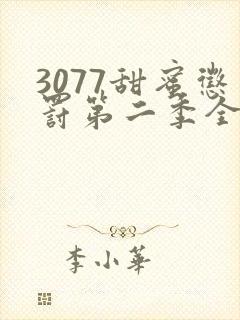 3077甜蜜惩
罚第二季全
李小华